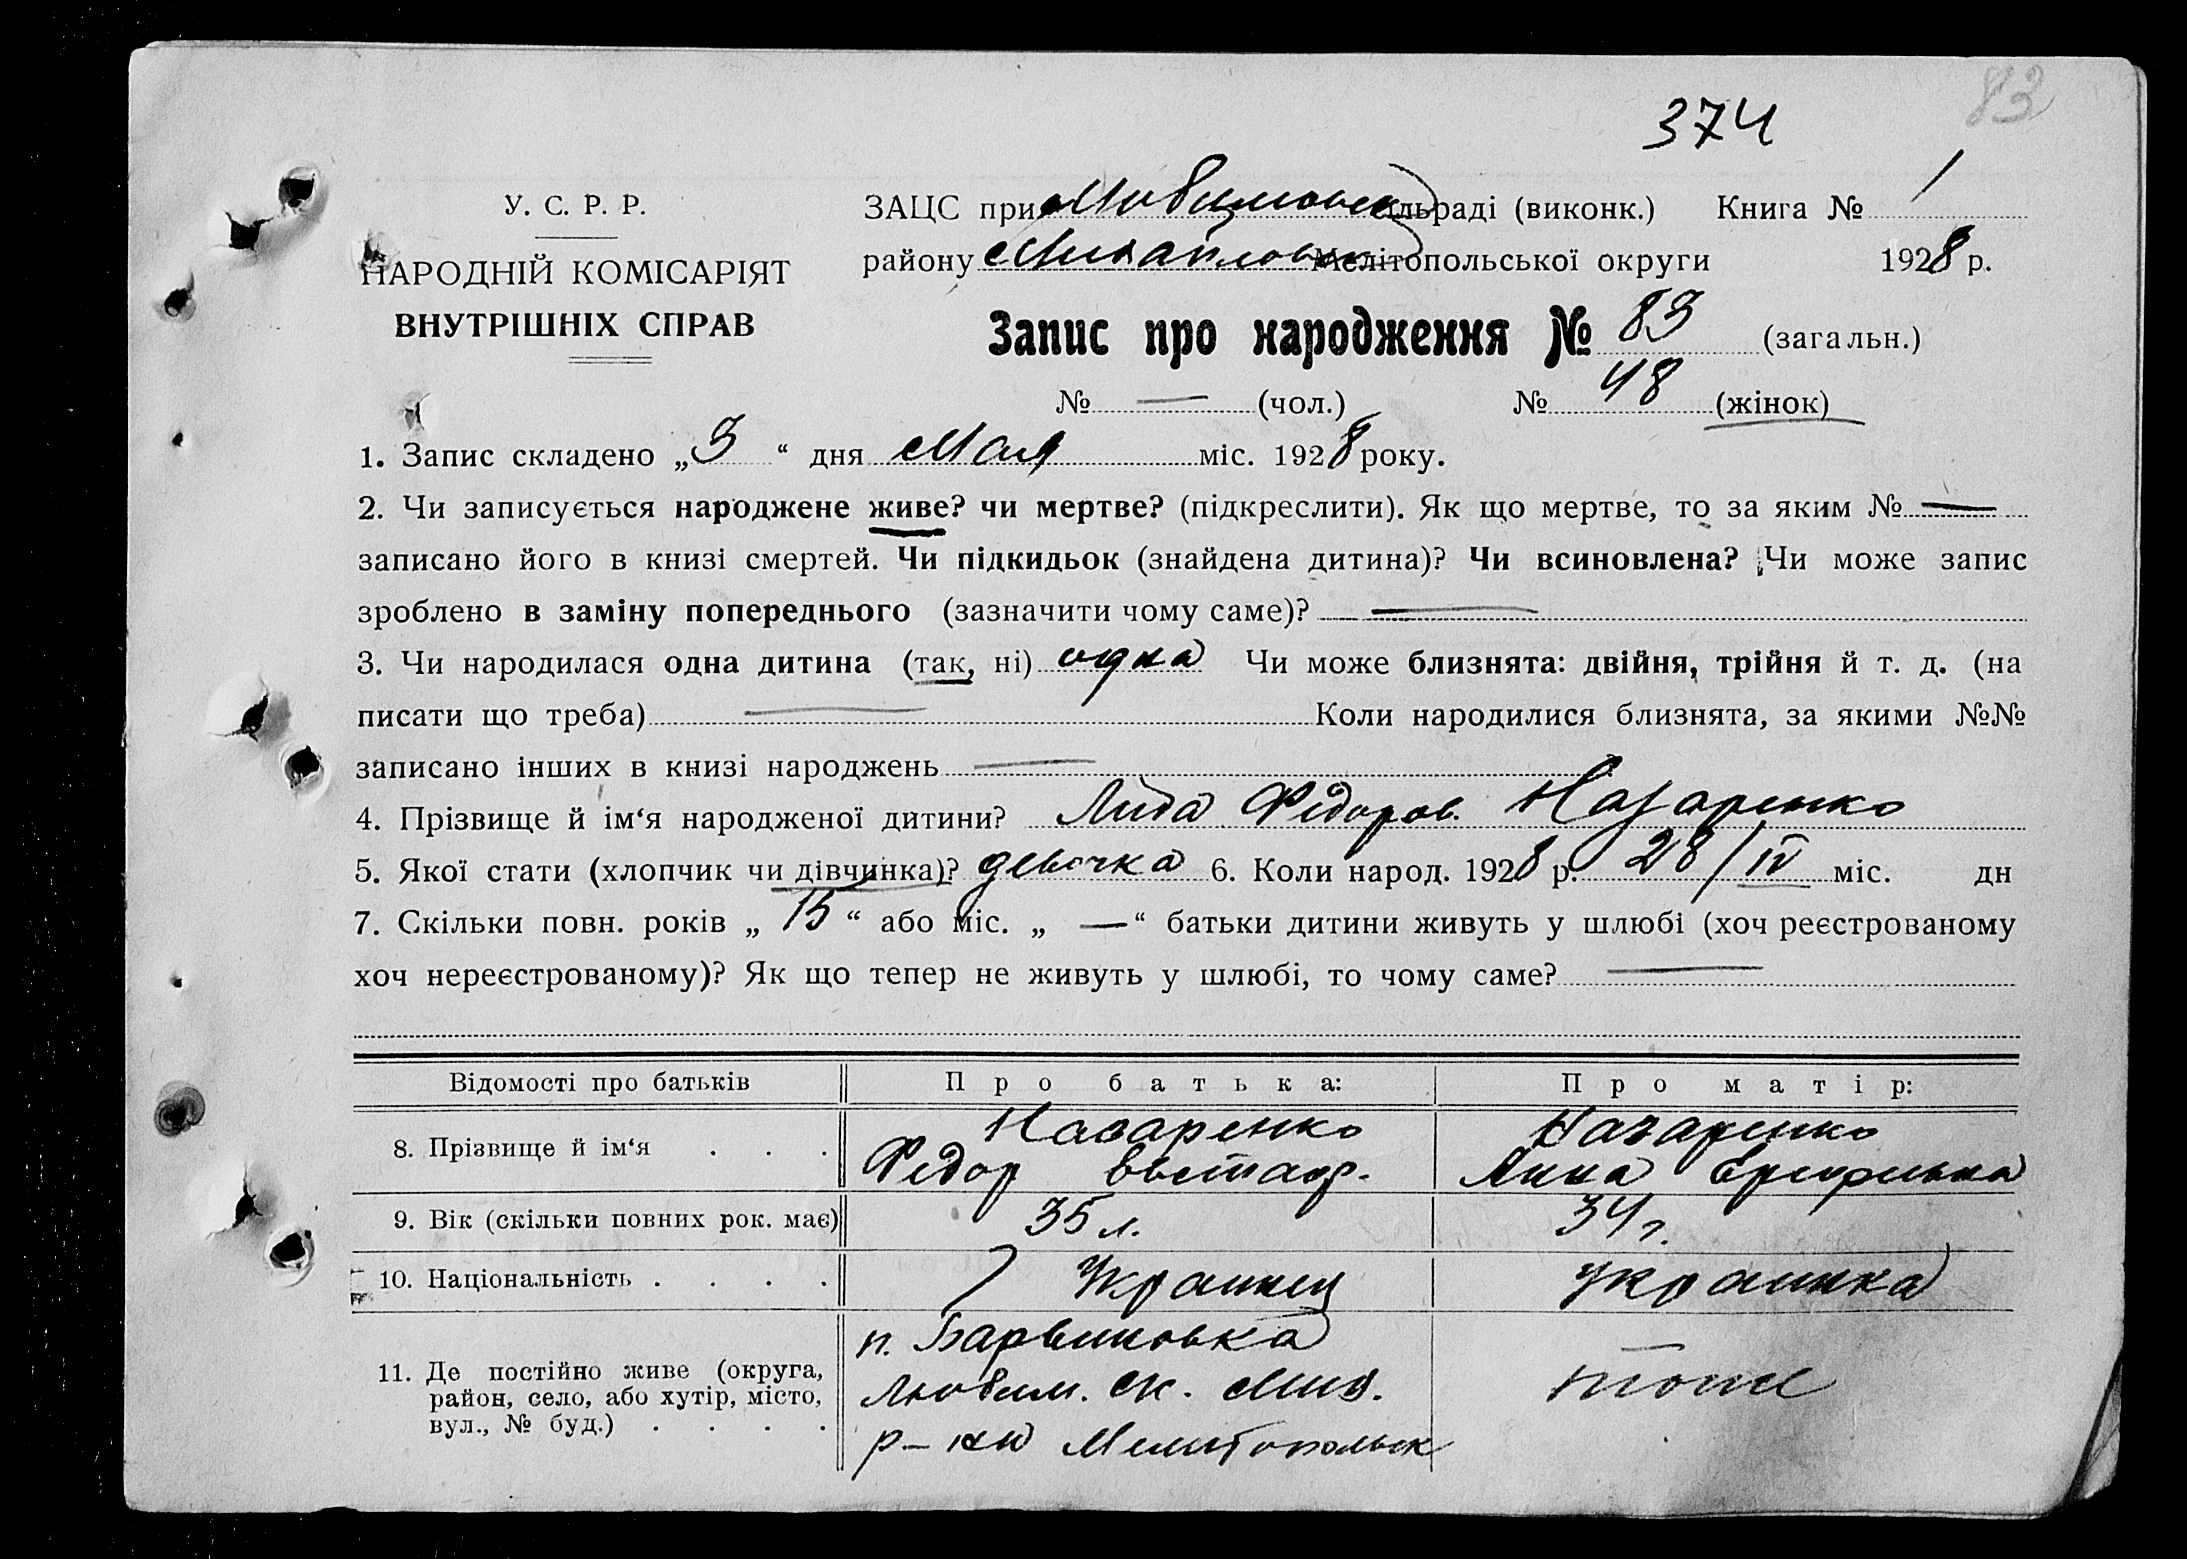 83
374
У. С. Р. Р.
НАРОДНІЙ КОМІСАРІЯТ
ВНУТРІШНІХ СПРАВ
ЗАЦС при Любимовск сільраді (виконк.) Книга № 1
району Михайловск Мелітопольської округи 1928 р.
Запис про народження № 83 (загальн.)
№ — (чол.) № 48 (жінок)
1. Запис складено „3“ дня Мая міс. 1928 року.
2. Чи записується народжене живе? чи мертве? (підкреслити). Як що мертве, то за яким № —
записано його в книзі смертей. Чи підкидьок (знайдена дитина)? Чи всиновлена? Чи може запис
зроблено в заміну попереднього (зазначити чому саме)? —
3. Чи народилася одна дитина (так, ні) одна Чи може близнята: двійня, трійня й т. д. (на
писати що треба) — Коли народилися близнята, за якими №№
записано інших в книзі народжень —
4. Прізвище й ім‘я народженої дитини? Лида Фёдоров. Назаренко
5. Якої стати (хлопчик чи дівчинка)? девочка 6. Коли народ. 1928 р. 28/IV міс. дн
7. Скільки повн. років „15“ або міс. „—“ батьки дитини живуть у шлюбі (хоч реєстрованому
хоч нереєстрованому)? Як що тепер не живуть у шлюбі, то чому саме? —
Відомості про батьків Про батька: Про матір:
8. Прізвище й ім‘я . . . Назаренко Федор Назаренко Анна
9. Вік (скільки повних рок. має) 35 л. 34 г.
10. Національність . . . . Украинец Украинка
11. Де постійно живе (округа, район, село, або хутір, місто, вул., № буд.) . . . . п. Барвиновка
Любим. ск. Мих. тоже
р-на Мелитопольск